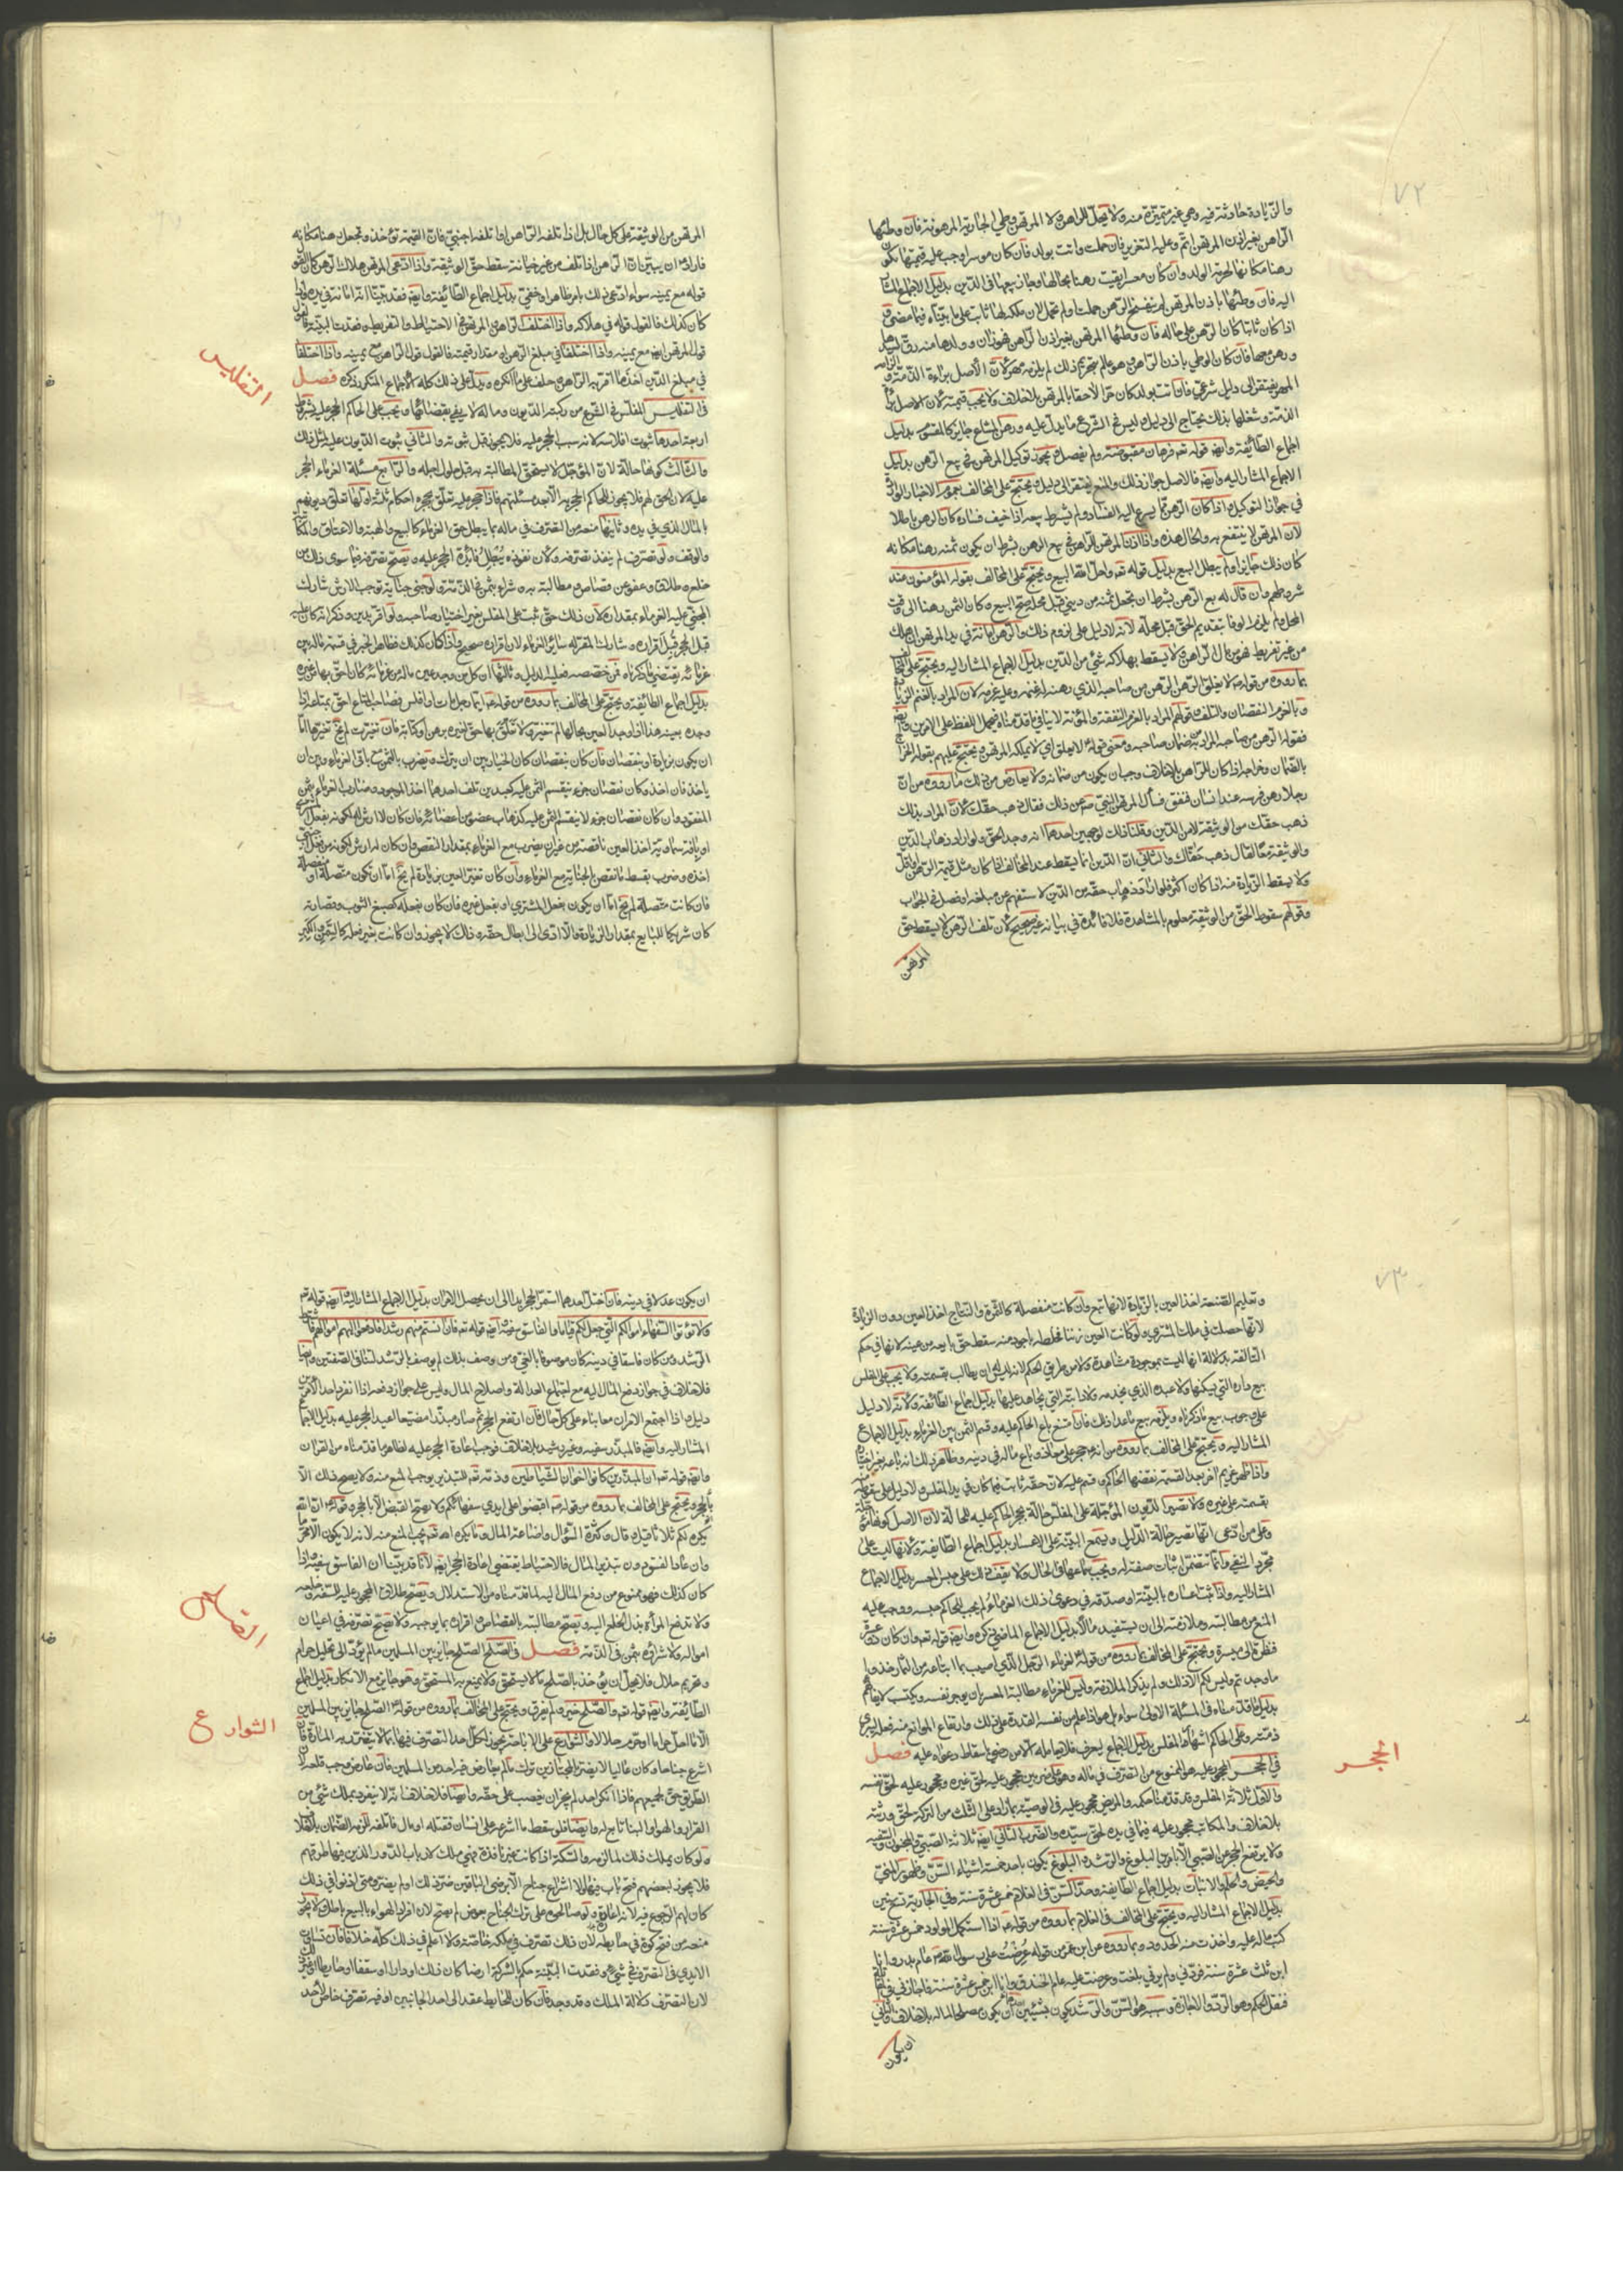 ٧٢
والزيادة حادثة فيه وهي غير متميزة منه ولا يحل للراهن ولا المرتهن وطي الجارية المرهونة فان وطئها
الراهن بغير اذن المرتهن اثم وعليه التعزير فان حملت واتت بولد فان كان موسرا وجب عليه قيمتها تكون
رهنا مكانها لحرمة الولد وان كان معسرا بقيت رهنا بحالها وجاز بيعها في الدين بدليل الاجماع المشا
اليه فان وطئها باذن المرتهن لم ينفسخ الرهن حملت او لم تحمل لان ملكه لها ثابت على ما بيناه فيما مضى و
اذا كان ثابتا كان الرهن على حاله فان وطئها المرتهن بغير اذن الراهن فهو زان وولدها منه رق لسيدها
ورهن معها فان كان الوطي باذن الراهن وهو عالم بتحريم ذلك لم يلزمه مهر لان الأصل براءة الذمة والزامه
المهر يفتقر الى دليل شرعي فان اتت بولد كان حرا لاحقا بالمرتهن بلا خلاف ولا يجب قيمته لان الاصل براءة
الذمة وشغلها بذلك يحتاج الى دليل وليس في الشرع ما يدل عليه ورهن المشاع جايز كالمقسوم بدليل
اجماع الطائفة وايضا قوله تع فرهان مقبوضة ولم يفصل ويجوز توكيل المرتهن في بيع الرهن بدليل
الاجماع المشار اليه وايضا فالاصل جواز ذلك والمنع يفتقر الى دليل ويحتج على المخالف بعموم الاخبار الواردة
في جواز التوكيل واذا كان الرهن مما يسرع اليه الفساد ولم يشرط بيعه اذا خيف فساده كان الرهن باطلا
لان المرتهن لا ينتفع به والحال هذه واذا اذن المرتهن للراهن في بيع الرهن بشرط ان يكون ثمنه رهنا مكانه
كان ذلك جايزا ولم يبطل البيع بدليل قوله تع واحل الله البيع ويحتج على المخالف بقوله المؤمنون عند
شروطهم وان قال له بع الرهن بشرط ان تجعل ثمنه من ديني قبل محله صح البيع وكان الثمن رهنا الى وقت
المحل ولم يلزم الوفا بتقديم الحق قبل محله لانه لا دليل على لزوم ذلك والرهن امانة في يد المرتهن ان هلك
من غير تفريط فهو من مال الراهن ولا يسقط بهلاكه شئ من الدين بدليل الاجماع المشار اليه ويحتج على المخالف
بما رووه من قوله ع لا يغلق الرهن الرهن من صاحبه الذي رهنه له غنمه وعليه غرمه لان المراد بالغنم الزيادة
وبالغرم النقصان والتلف وقولهم المراد بالغرم النفقة والمؤنة لا ينافي ما قدمناه فيحمل اللفظ على الامرين وايضا
فقوله الرهن من صاحبه المراد به من ضمان صاحبه ومعنى قوله لا يغلق اي لا يملكه المرتهن ويحتج عليهم بقوله الخراج
بالضمان وخراجه اذا كان للراهن بلا خلاف وجب ان يكون من ضمانه ولا يعارض من ذلك ما رووه من ان
رجلا رهن فرسه عند انسان فنفق فسأل المرتهن النبي ص عن ذلك فقال ذهب حقك لان المراد بذلك
ذهب حقك من الوثيقة لا من الدين وقلنا ذلك لوجهين احدهما انه وحد الحق ولو اراد ذهاب الدين
والوثيقة معا لقال ذهب حقاك والثاني ان الدين انما يسقط عند المخالف اذا كان مثل قيمة الرهن او اقل
ولا يسقط الزيادة منه اذا كان اكثر فلو اراد ذهاب حقه من الدين لاستفهم عن مبلغه او فصل في الجواب
وقولهم سقوط الحق من الوثيقة معلوم بالمشاهدة فلا فائدة في بيانه غير صحيح لان تلف الرهن لا يسقط حق
المرتهن
المرتهن من الوثيقة على كل حال بل اذا تلفه الراهن او اتلفه اجنبي فان القيمة تؤخذ وتجعل رهنا مكانه
فاراد ع ان يبين ان الرهن اذا تلف من غير خيانة سقط حق الوثيقة واذا ادعى المرتهن هلاك الرهن كان القول
قوله مع يمينه سواء ادعى ذلك بامر ظاهر او خفي بدليل اجماع الطائفة وايضا فقد بينا انه امانة في يده واذا
كان كذلك فالقول قوله في هلاكه واذا اختلف الراهن والمرتهن في الاحتياط والتفريط وفقدت البينة فالقول
قول المرتهن ايضا مع يمينه واذا اختلفا في مبلغ الرهن او مقدار قيمته فالقول قول الراهن مع يمينه واذا اختلفا
في مبلغ الدين اخذ ما اقر به الراهن وحلف على ما انكره ويدل على ذلك كله الاجماع المتكرر ذكره فصل
التفليس
في التفليس المفلس في الشرع من ركبته الديون وماله لا يفي بقضائها ويجب على الحاكم الحجر عليه بشروط
اربعة احدها ثبوت افلاسه لانه سبب الحجر عليه فلا يجوز قبل ثبوته والثاني ثبوت الديون عليه لمثل ذلك
والثالث كونها حالة لان المؤجل لا يستحق المطالبة به قبل حلول اجله والرابع مسئلة الغرماء الحجر
عليه لان الحق لهم فلا يجوز للحاكم الحجر به الا بعد مسئلتهم فاذا حجر عليه تعلق بحجره احكام ثلثة اولها تعلق ديونهم
بالمال الذي في يده وثانيها منعه من التصرف في ماله بما يبطل حق الغرماء كالبيع والهبة والاعتاق والمكاتبة
والوقف ولو تصرف لم ينفذ تصرفه ولان نفوذه يبطل فائدة الحجر عليه ويصح تصرفه فيما سوى ذلك من
خلع وطلاق وعفو عن قصاص ومطالبة به وشراء بثمن في الذمة ولو جنى جناية توجب الارش شارك
المجني عليه الغرماء بمقداره لان ذلك حق ثبت على المفلس بغير اختيار صاحبه ولو اقر بدين وذكر انه كان عليه
قبل الحجر قبل اقراره وشارك المقر له ساير الغرماء لان اقراره صحيح واذا كان كذلك فظاهر الخبر في قسمة ماله بين
غرمائه يقتضي ما ذكرناه فمن خصصه فعليه الدليل وثالثها ان كل من وجد عين ماله من غرمائه كان احق بها من غيره
بدليل اجماع الطائفة ويحتج على المخالف بما رووه من قوله ع ايما رجل مات او افلس فصاحب المتاع احق بمتاعه اذا
وجده بعينه هذا اذا وجد العين بحالها لم تتغير ولا تعلق بها حق لغيره برهن او كتابة فان تغيرت لم يخ تغيرها اما
ان يكون بزيادة او نقصان فان كان بنقصان كان الخيار بين ان يترك ويضرب بالثمن مع باقي الغرماء وبين ان
ياخذ فان اخذ وكان نقصان جزء ينقسم الثمن عليه كعبدين تلف احدهما اخذ الموجود وضارب الغرماء بثمن
المفقود وان كان نقصان جزء لا ينقسم الثمن عليه كذهاب عضو من اعضائه فان كان لا ارش له لكونه بفعل المشتري
او بافة سماوية اخذ العين ناقصة من غير ان يضرب مع الغرماء بمقدار النقص وان كان له ارش لكونه من فعل اجنبي
اخذه وضرب بقسط ما نقص بالجناية مع الغرماء وان كان تغير العين بزيادة لم يخ اما ان تكون متصلة او منفصلة
فان كانت متصلة لم يخ اما ان يكون بفعل المشتري او بفعل غيره فان كان بفعله كصبغ الثوب وقصارته
كان شريكا للبايع بمقدار الزيادة والا ادى الى ابطال حقه وذلك لا يجوز وان كانت بغير فعله كالسمن والكبر
٧٣
وتعليم الصنعة اخذ العين بالزيادة لانها تبع وان كانت منفصلة كالثمرة والنتاج اخذ العين دون الزيادة
لانها حصلت في ملك المشتري ولو كانت العين زيتا فخلطه باجود منه سقط حق بايعه من عينه لانها في حكم
التالفة بدلالة انها ليست بموجودة مشاهدة ولا من طريق الحكم لانه ليس له ان يطالب بقسمته ولا يجب على المفلس
بيع داره التي يسكنها ولا عبده الذي يخدمه ولا دابته التي يجاهد عليها بدليل اجماع الطائفة ولانه لا دليل
على وجوب بيع ما ذكرناه ويلزمه بيع ما عدا ذلك فان امتنع باع الحاكم عليه وقسم الثمن بين الغرماء بدليل الاجماع
المشار اليه ويحتج على المخالف بما رووه من انه ع حجر على معاذ وباع ماله في دينه وظاهر ذلك انه باعه بغير اختياره
واذا ظهر غريم اخر بعد القسمة نقضها الحاكم وقسم عليه لان حقه ثابت فيما كان في يد المفلس ولا دليل على
بقسمته على غيره ولا تصير الديون المؤجلة على المفلس حالة بحجر الحاكم عليه للحالة لان الاصل كونها مؤجلة
وعلى من ادعى انها تصير حالة الدليل ويسمع البينة على الاعسار بدليل اجماع الطايفة ولانها ليست على
مجرد النفي وانما تتضمن اثبات صفة له ويجب سماعها في الحال ولا يقف ذلك على حبس المعسر بدليل الاجماع
المشار اليه واذا ثبت اعساره بالبينة او صدقه في دعوى ذلك الغرماء لم يجب للحاكم حبسه ووجب عليه
المنع من مطالبته وملازمته الى ان يستفيد مالا بدليل الاجماع الماضي ذكره وايضا قوله تع وان كان ذو عسرة
فنظرة الى ميسرة ويحتج على المخالف بما رووه من قوله لغرماء الرجل الذي اصيب بما ابتاعه من الثمار خذوا
ما وجدتم وليس لكم الا ذلك ولم يذكر الملازمة وليس للغرماء مطالبة المعسر بان يوجر نفسه ويكتسب لايفائهم
بدليل ما قدمناه في المسئلة الاولى سواء بل هو اذا علم من نفسه القدرة على ذلك وارتفاع الموانع منه فعله ليبرئ
ذمته وعلى الحاكم اشهار المفلس بدليل الاجماع ليعرف فلا يعامله الا من رضي باسقاط دعواه عليه فصل
الحجر
في الحجر المحجور عليه هو الممنوع من التصرف في ماله وهو على ضربين محجور عليه لحق غيره ومحجور عليه لحق نفسه
والاول ثلاثة المفلس وقد قدمنا حكمه والمريض محجور عليه في الوصية بما زاد على الثلث من التركة لحق ورثته
بلا خلاف والمكاتب محجور عليه فيما في يده لحق سيده والضرب الثاني ايضا ثلاثة الصبي والمجنون والسفيه
ولا يرتفع الحجر عن الصبي الا بامرين البلوغ والرشد والبلوغ يكون باحد خمسة اشياء السن وظهور المني
والحيض والحلم والانبات بدليل اجماع الطايفة وحد السن في الغلام خمس عشرة سنة وفي الجارية تسع سنين
بدليل الاجماع المشار اليه ويحتج على المخالف في الغلام بما رووه من قوله ع اذا استكمل المولود خمس عشرة سنة
كتب ماله وعليه واخذت منه الحدود وبما رووه عن ابن عمر من قوله عرضت على رسول الله ص عام بدر وانا
ابن ثلث عشرة سنة فردني ولم يرني بلغت وعرضت عليه عام الخندق وانا ابن خمس عشرة سنة فاجازني في المقاتلة
فنقل الحكم وهو الرد والاجازة وسببه هو السن والرشد يكون بشيئين احدهما ان يكون مصلحا لماله بلا خلاف والثاني
ان يكون
ان يكون عدلا في دينه فان اختل احدهما استمر الحجر ابدا الى ان يحصل الامران بدليل الاجماع المشار اليه وايضا قوله تع
ولا تؤتوا السفهاء اموالكم التي جعل الله لكم قياما والفاسق سفيه وايضا قوله تع فان انستم منهم رشدا فادفعوا اليهم اموالهم فاشترط
الرشد ومن كان فاسقا في دينه كان موصوفا بالغي ومن وصف بذلك لم يوصف بالرشد لتنافي الصفتين وايضا
فلا خلاف في جواز دفع المال اليه مع اجتماع العدالة واصلاح المال وليس على جواز دفعه اذا انفرد احد الامرين
دليل واذا اجتمع الامران معا بناء على كل حال فان ارتفع الحجر ثم صار مبذرا مضيعا اعيد الحجر عليه بدليل الاجماع
المشار اليه وايضا فالمبذر سفيه وغير رشيد بلا خلاف فوجب اعادة الحجر عليه لظاهر ما قدمناه من القران
وايضا قوله تع ان المبذرين كانوا اخوان الشياطين وذمه تع للتبذير يوجب المنع منه ولا يصح ذلك الا
بالحجر ويحتج على المخالف بما رووه من قوله ع اقبضوا على ايدي سفهائكم ولا يصح القبض الا بالحجر وقوله ع ان الله
يكره لكم ثلاثا قيل وقال وكثرة السؤال واضاعة المال وما يكره الله تع يجب المنع منه لانه لا يكون الا محرما
وان عاد الفسق دون تبذير المال فالاحتياط يقتضي اعادة الحجر ايضا لانا قد بينا ان الفاسق سفيه واذا
كان كذلك فهو ممنوع من دفع المال اليه لما قدمناه من الاستدلال ويصح طلاق المحجور عليه للسفه وخلعه
ولا تدفع المرأة بذل الخلع اليه ويصح مطالبته بالقصاص واقراره بما يوجبه ولا يصح تصرفه في اعيان
امواله ولا شراؤه بثمن في الذمة فصل في الصلح الصلح جايز بين المسلمين ما لم يؤد الى تحليل حرام
الصلح
وتحريم حلال فلا يحل ان يؤخذ بالصلح ما لا يستحق ولا يمنع به المستحق وهو جايز مع الانكار بدليل اجماع
الطائفة وايضا قوله تع والصلح خير ولم يفرق ويحتج على المخالف بما رووه من قوله ع الصلح جايز بين المسلمين
الا ما احل حراما او حرم حلالا والشوارع على الاباحة يجوز لكل احد التصرف فيها بما لا يتضرر به المارة فان
الشوارع
اشرع جناحا وكان عاليا لا يضر بالمجتازين ترك ما لم يعارض فيه احد من المسلمين فان عارض وجب قلعه لان
الطريق حق لجميعهم فاذا انكر احدهم لم يجز ان يغصب على حقه وايضا فلا خلاف انه لا ينفرد بملك شئ من
القرار والهواء والبنا تابع له وايضا فلو سقط ما اشرعه على انسان فقتله او مال فاتلفه لزمه الضمان بلا خلاف
ولو كان يملك ذلك لما لزمه والسكة اذا كانت غير نافذة فهي ملك لارباب الدور الذين فيها طرقهم
فلا يجوز لبعضهم فتح باب فيها ولا اشراع جناح الا برضى الباقين ضر ذلك او لم يضر ومتى اذنوا في ذلك
كان لهم الرجوع فيه لانه اعارة ولو صالحوه على ترك الجناح بعوض لم يصح لان افراد الهواء بالبيع باطل ولا يجوز
منعه من فتح كوة في حايطه لان ذلك تصرف في ملكه خاصة ولا اعلم في ذلك كله خلافا فان تساوى
الايدي في التصرف في شئ وفقدت البينة حكم بالشركة ارضا كان ذلك او دارا او سقفا او حايطا او غير ذلك
لان التصرف دلالة الملك وقد وجد فان كان للحايط عقد الى احد الجانبين او فيه تصرف خاص لاحد